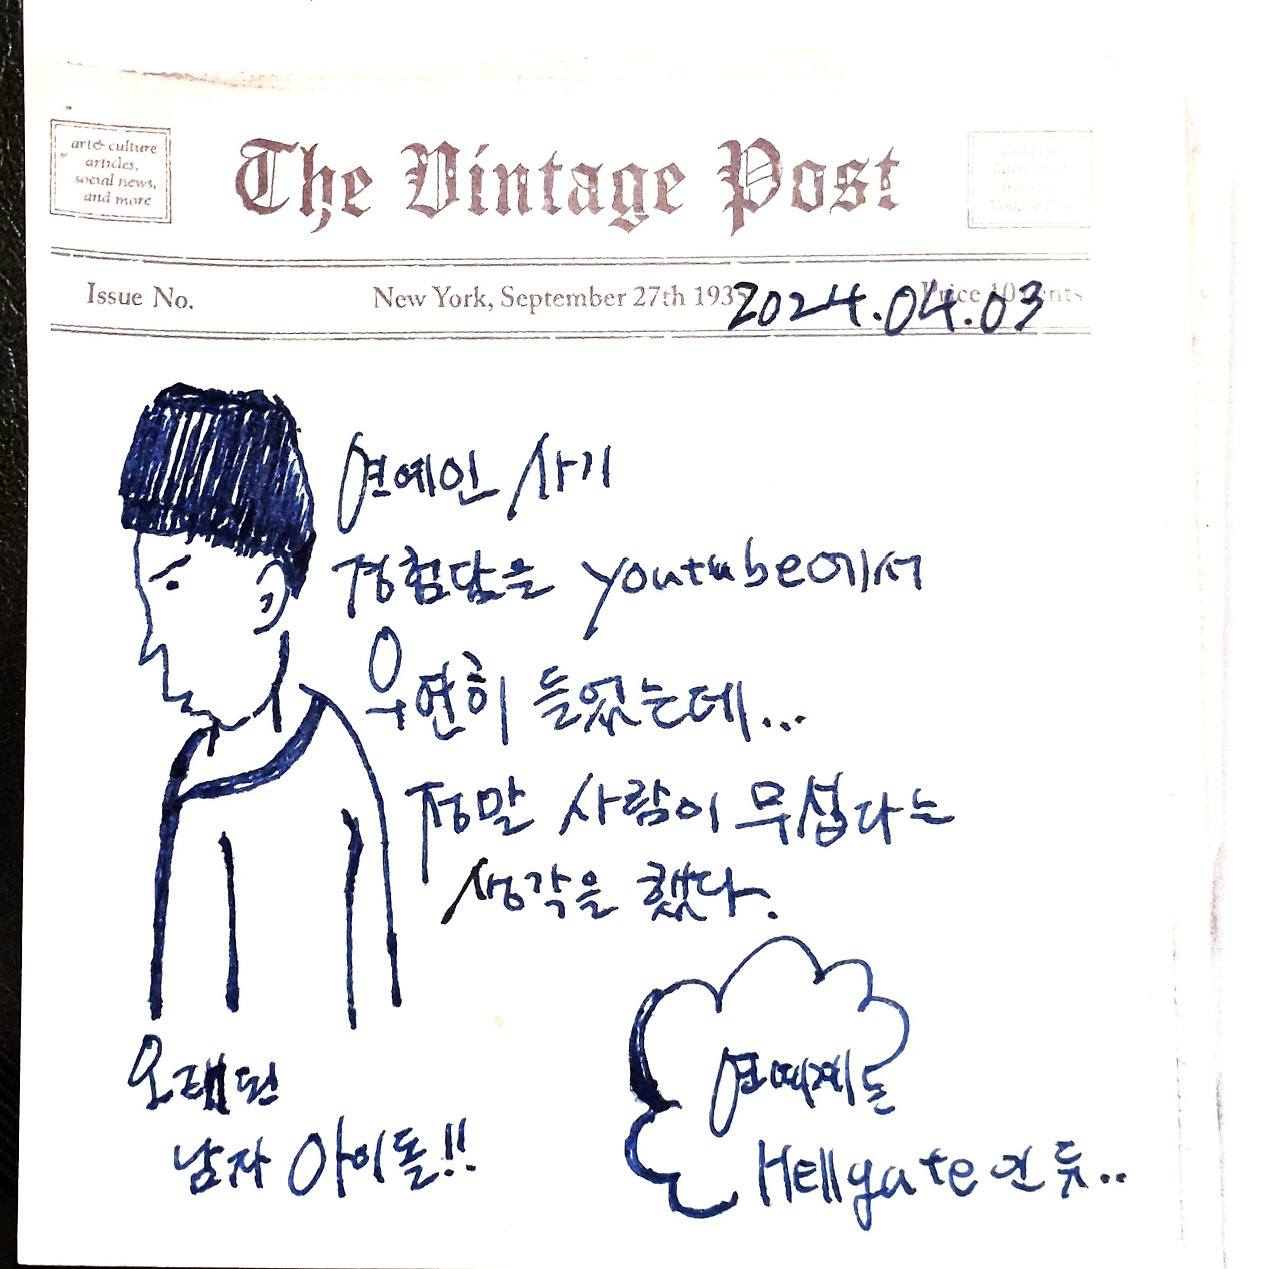 art& culture
articles,
social news,
and more
The Vintage Post
Issue No.
New York, September 27th 1935
Price 10 Cents
2024.04.03
연예인 사기
경험담을 youtube에서
우연히 들었는데...
정말 사람이 무섭다는
생각을 했다.
오래된
남자 아이돌!!
Hellgate인 듯..